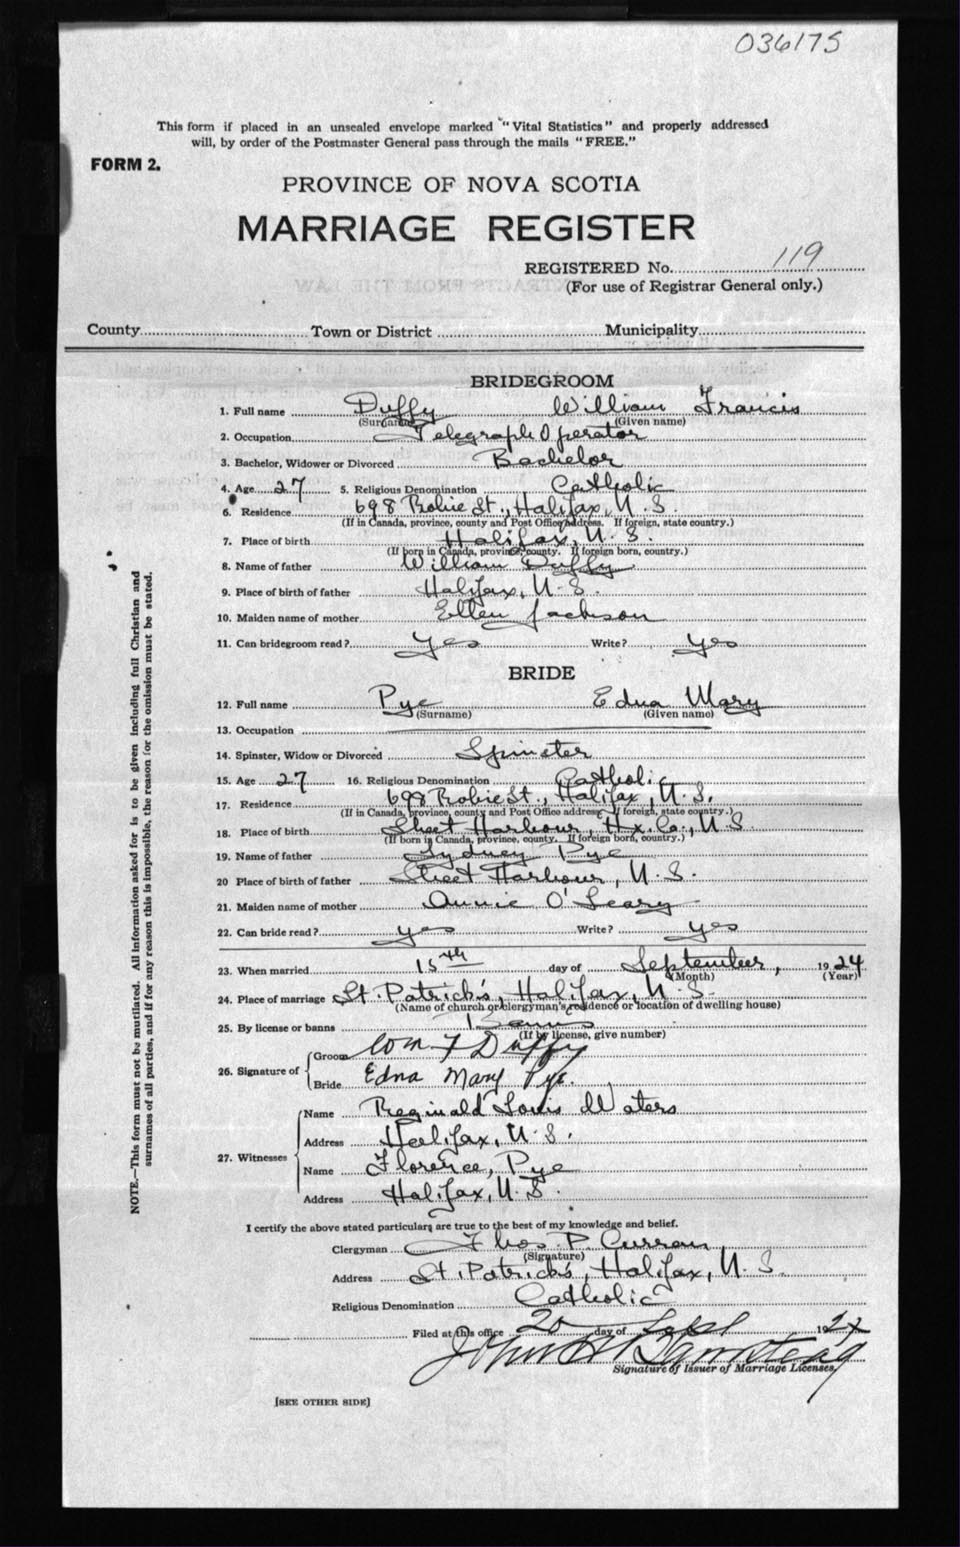 036175
This form if placed in an unsealed envelope marked "Vital Statistics" and properly addressed
will, by order of the Postmaster General pass through the mails "FREE."
FORM 2.
PROVINCE OF NOVA SCOTIA
MARRIAGE REGISTER
REGISTERED No. 119
(For use of Registrar General only.)
County Town or District Municipality
BRIDEGROOM
1. Full name Duffy William Francis
(Surname) (Given name)
2. Occupation Telegraph Operator
3. Bachelor, Widower or Divorced Bachelor
4. Age 27 5. Religious Denomination Catholic
6. Residence 698 Robie St., Halifax, N.S.
(If in Canada, province, county and Post Office address. If foreign, state country.)
7. Place of birth Halifax, N.S.
(If born in Canada, province, county. If foreign born, country.)
8. Name of father William Duffy
9. Place of birth of father Halifax, N.S.
10. Maiden name of mother Ellen Jackson
11. Can bridegroom read? Yes Write? Yes
BRIDE
12. Full name Pye Edna Mary
(Surname) (Given name)
13. Occupation
14. Spinster, Widow or Divorced Spinster
15. Age 27 16. Religious Denomination Catholic
17. Residence 698 Robie St., Halifax, N.S.
(If in Canada, province, county and Post Office address. If foreign, state country.)
18. Place of birth Sheet Harbour, Hx. Co., N.S.
(If born in Canada, province, county. If foreign born, country.)
19. Name of father Sydney Pye
20 Place of birth of father Sheet Harbour, N.S.
21. Maiden name of mother Annie O'Leary
22. Can bride read? yes Write? yes
23. When married 15th day of September, 1924
(Month) (Year)
24. Place of marriage St. Patrick's, Halifax, N.S.
(Name of church or clergyman's residence or location of dwelling house)
25. By license or banns Banns
(If by license, give number)
26. Signature of Groom Wm F Duffy
Bride Edna Mary Pye.
27. Witnesses Name Reginald Louis Waters
Address Halifax, N.S.
Name Florence, Pye
Address Halifax, N.S.
I certify the above stated particulars are true to the best of my knowledge and belief.
Clergyman Thos. P. Curran
(Signature)
Address St. Patrick's, Halifax, N.S.
Religious Denomination Catholic
Filed at this office 20 day of Sept 192
John H
Signature of Issuer of Marriage Licenses.
[SEE OTHER SIDE]
NOTE.—This form must not be mutilated. All information asked for is to be given including full Christian and
surnames of all parties, and if for any reason this is impossible, the reason for the omission must be stated.